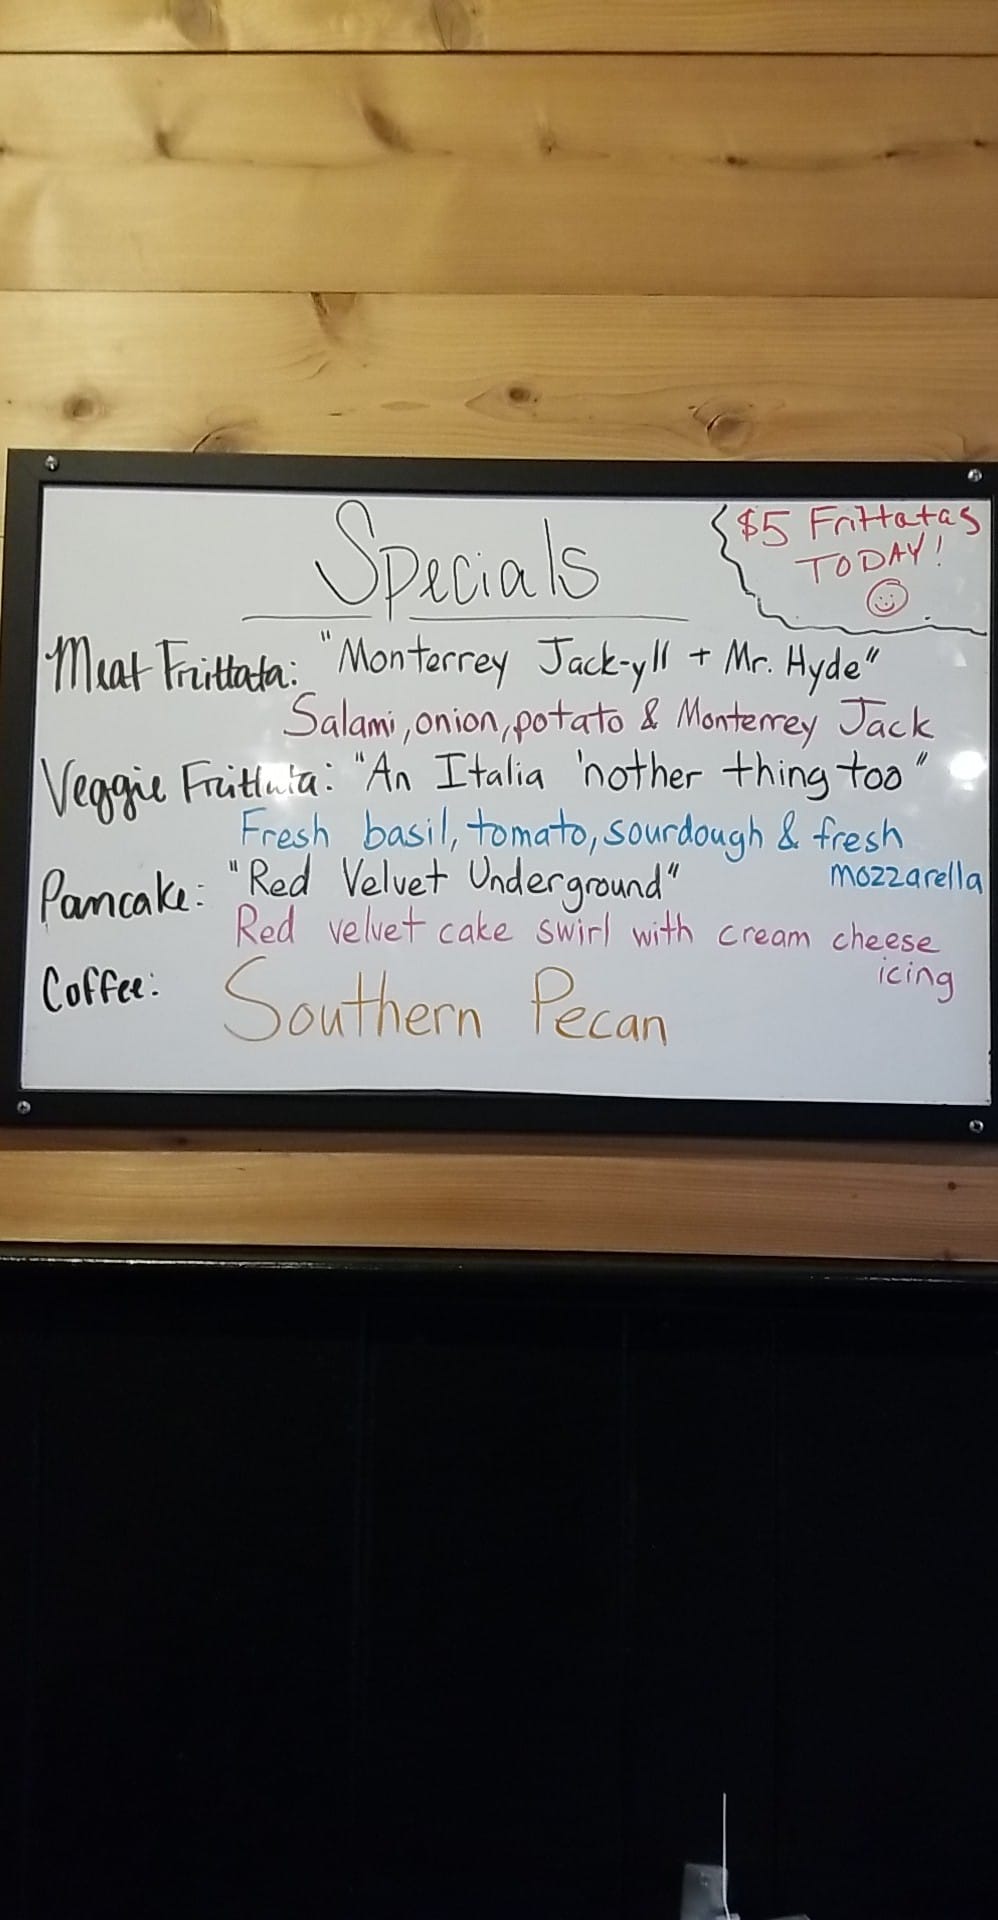 Specials
$5 Frittatas
TODAY!
Meat Frittata: "Monterrey Jack-yll + Mr. Hyde"
Salami, onion, potato & Monterrey Jack
Veggie Frittata: "An Italia 'nother thing too"
Fresh basil, tomato, sourdough & fresh
mozzarella
Pancake: "Red Velvet Underground"
Red velvet cake swirl with cream cheese
icing
Coffee: Southern Pecan